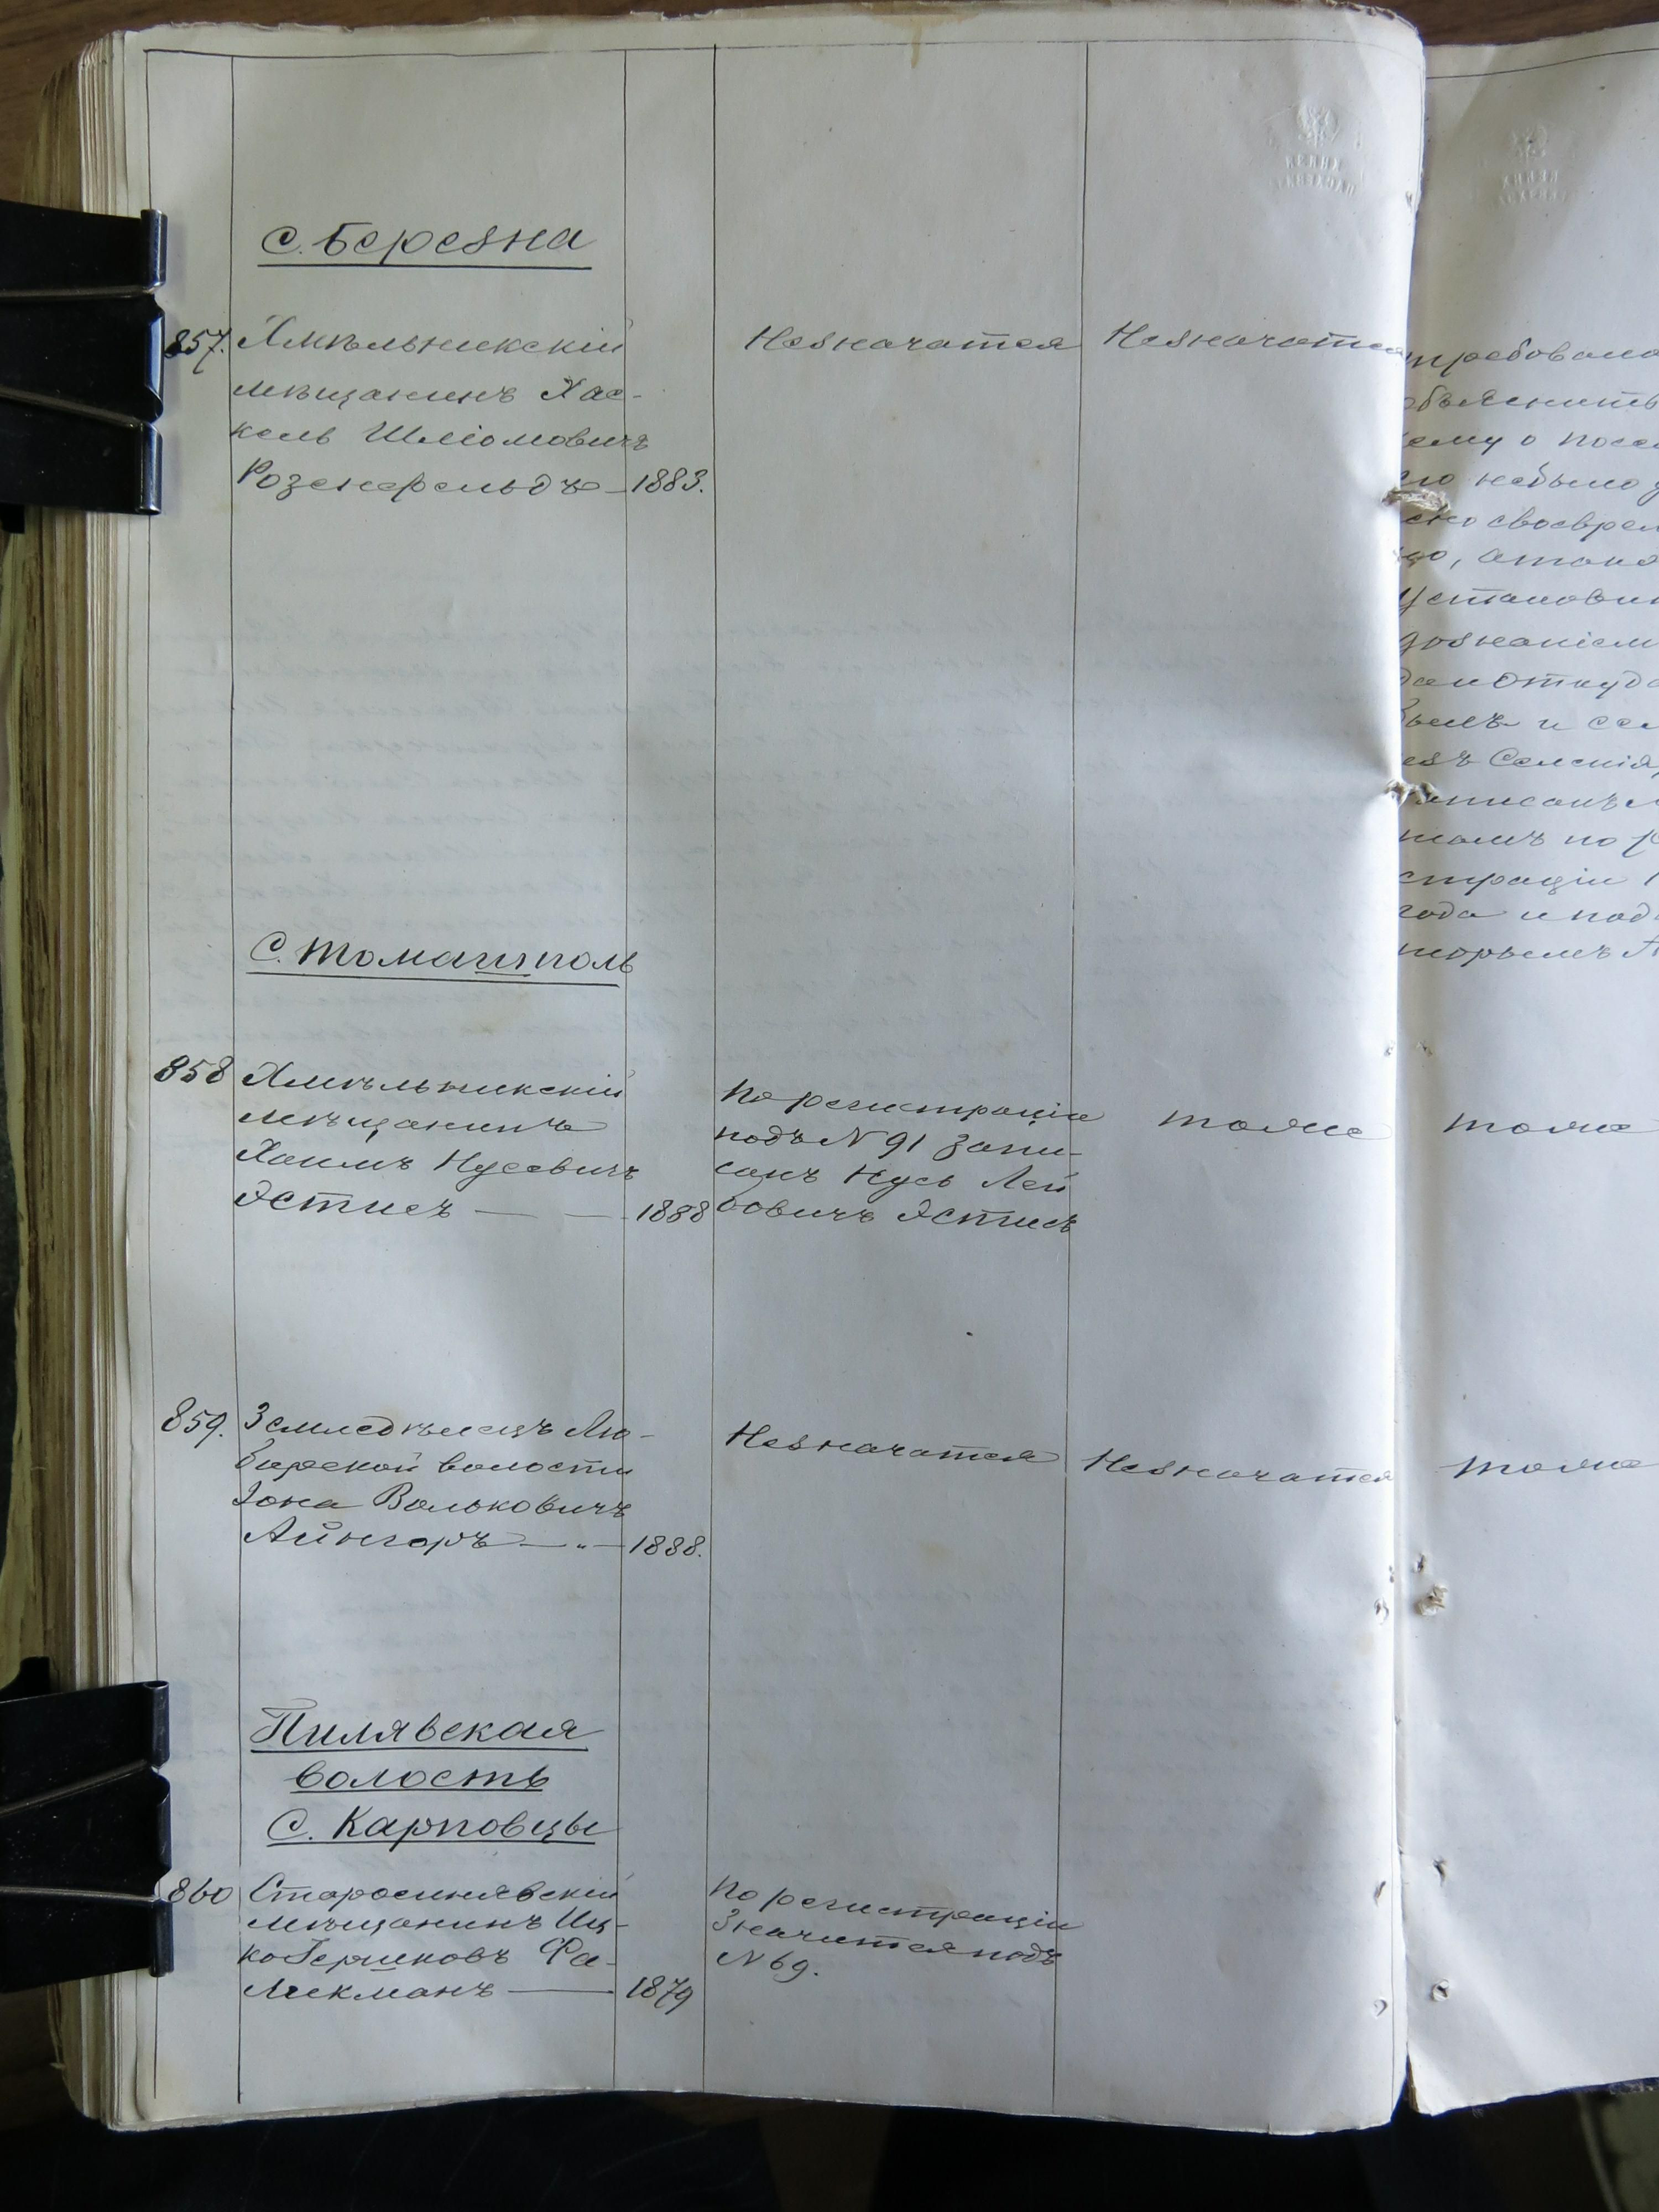 С. Березна
857. Хмѣльникскій
мѣщанинъ Хас-
кель Шліомовичъ
Розенфельдъ — 1883.
Незначатся
Незначатся
требовано
объяснить
чему о посе
его небыло
сво
що, а
Установи
дознаніем
да и откуда
былъ и се
записанъ
томъ по р
страціи 1
года и под
С. Томашполь
858 Хмѣльникскій
мѣщанинъ
Хаимъ Нусевичъ
Эстисъ — — 1888
По регистраціи
подъ N 91 запи-
санъ Нусь Лей
бовичъ Эстисъ
тоже
тоже
859. Земледѣлецъ Лю-
барской волости
Іона Вольковичъ
Айнгоръ — „ — 1888.
Незначатся
Незначатся
тоже
Пилявская
волость
С. Карповцы
860 Старосинявскій
мѣщанинъ Иц-
ко Гершковъ Фа-
ликманъ — 1879
По регистраціи
Значится подъ
N 69.